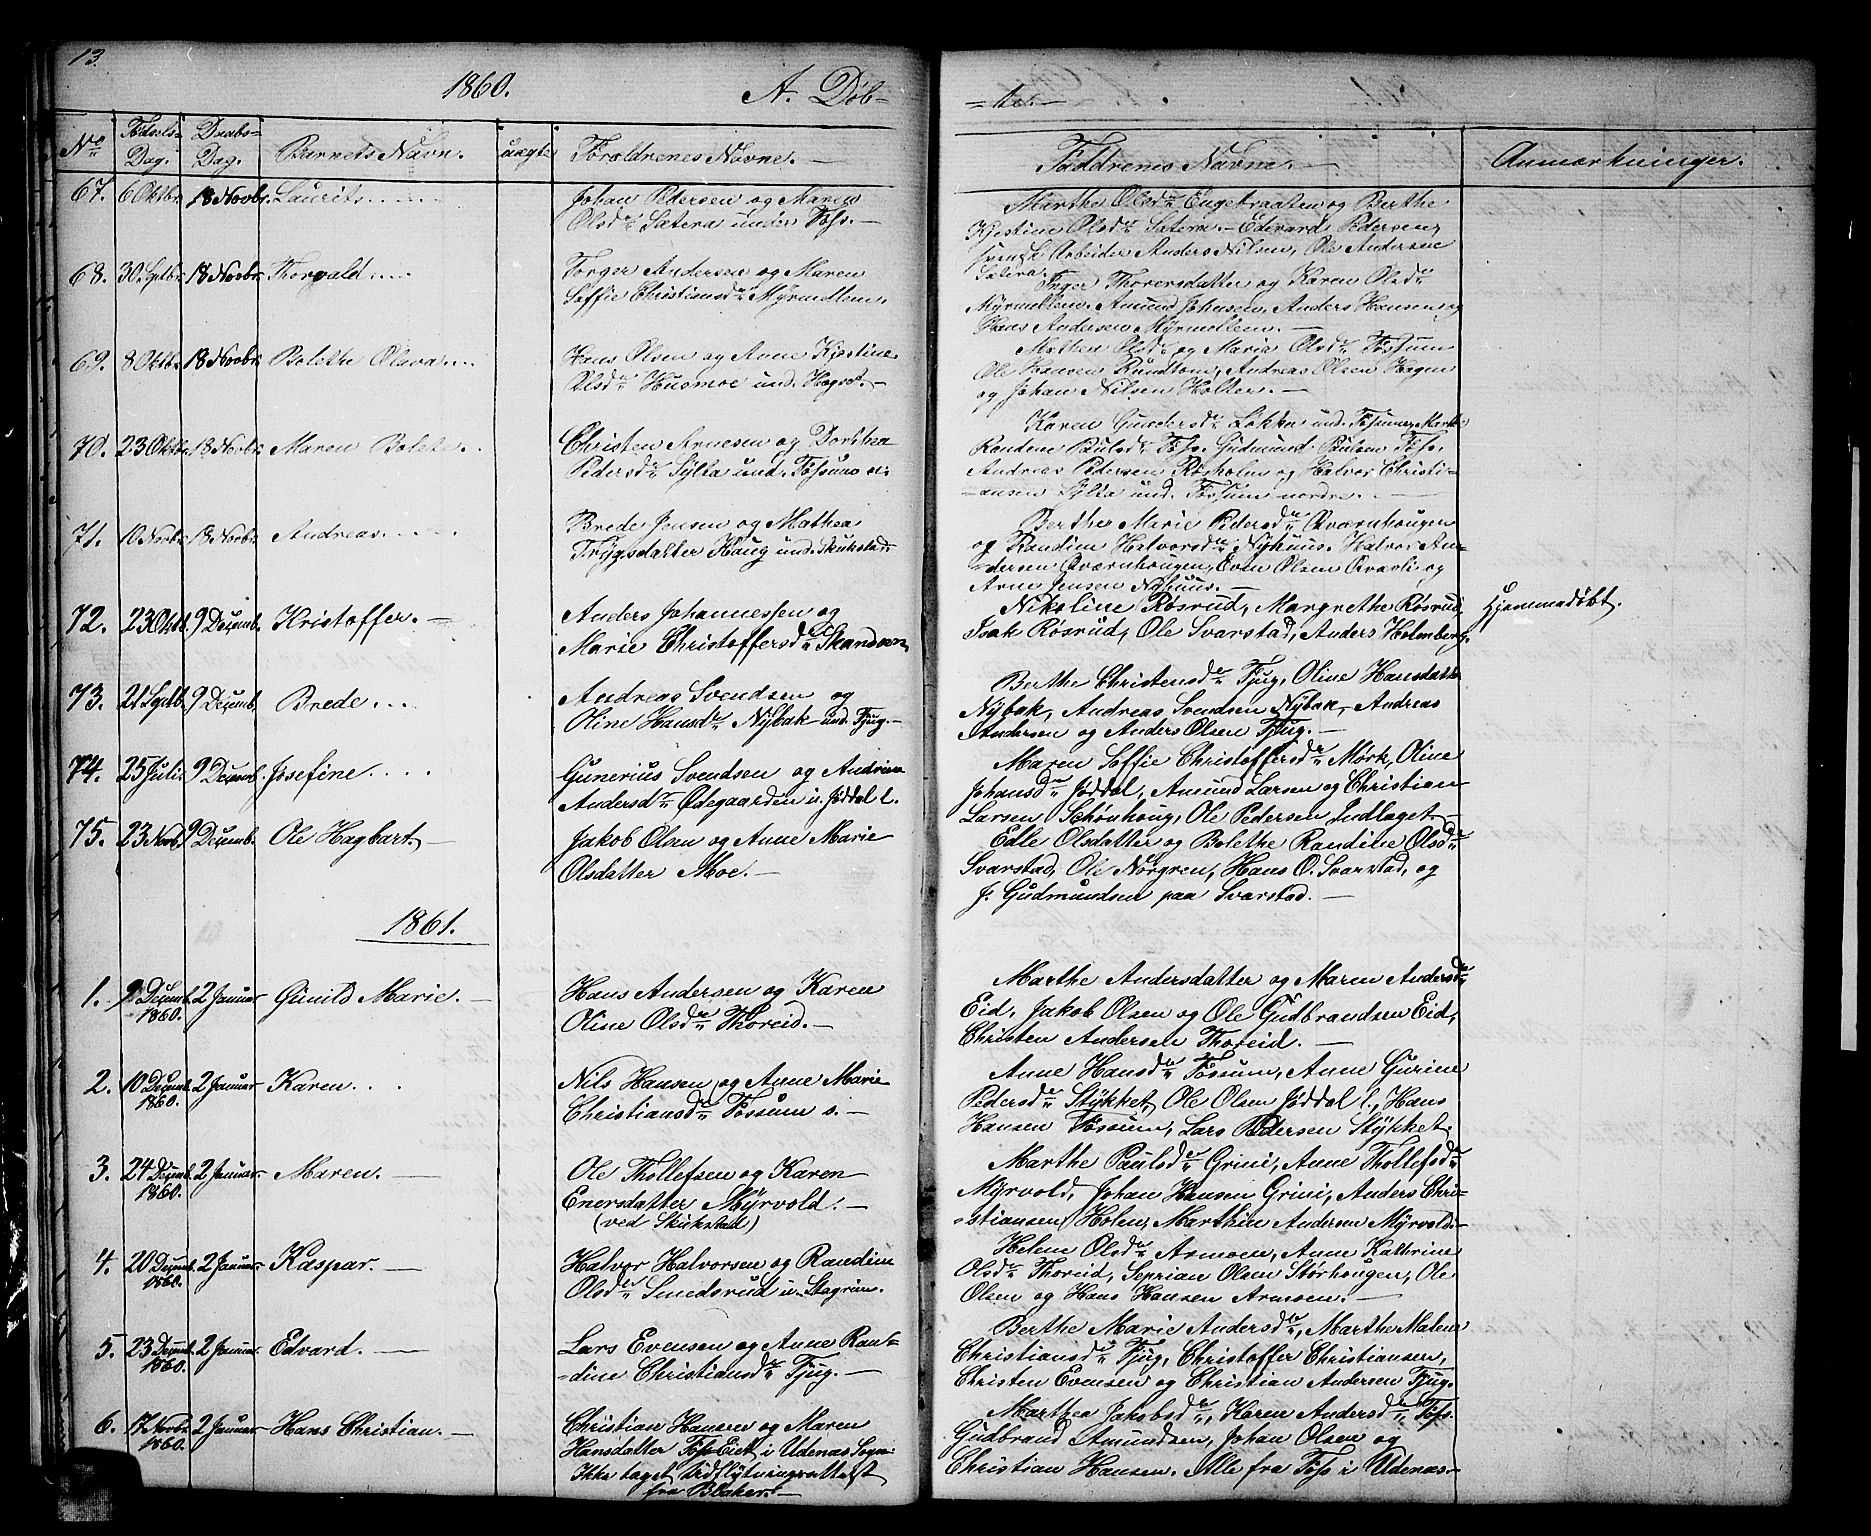 13.
1860. A. Døb-
-te.-
No Fødsels- Dag. Daabs- Dag. Barnets Navn. uægte Forældrenes Navne. -
Faddrenes Navne. - Anmærkninger.
67. 6 Oktbr. 18 Novbr. Laurits
Johan Pedersen og Maren
Olsdr Sætera under Foss. -
Marthe Olsdr Engebraaten og Berthe
Kjestine Olsdr Sætera. - Edvard Pedersen,
svensk Arbeider Anders Nilsen, Ole Andersen
Sætera.
68. 30 Septbr. 18 Novbr. Thorvald
Torger Andersen og Maren
Soffie Christiansdr Myrmollem.
Inger Thorersdatter og Karen Olsdr
Myrmollem. Amund Johnsen, Anders Hansen og
Hans Andersen Myrmollem. -
69. 8 Oktbr. 18 Novbr. Bolethe Olava
Hans Olsen og Anne Kjestine
Olsdr Husmoe und. -
Mathea Olsdr og Maria Olsdr Fossum
Ole Hansen Rundtom, Andreas Olsen Hagen
og Johan Nilsen Holter. -
70. 23 Oktbr. 18 Novbr. Maren Bolete
Christen Arnesen og Dorthea
Pedersdr Sylta und. Fossum n.
Karen Gundersdr Løkka und. Fossum,
Randine Paulsdr Foss. Gudmund Paulsen Foss,
Andreas Pedersen Røsholm og Halvor Christi-
-ansen Sylta und. Fossum nordre. -
71. 10 Novbr. 18 Novbr. Andreas
Brede Jensen og Mathea
Trygsdatter Haug und. Skukstad.
Berthe Marie Pedersdr Qværnhougen
og Randine Halvorsdr Nyhuus. Halvor An-
-dersen Qværnhougen, Even Olsen og
Arne Jensen Nyhuus. -
72. 23 Oktb. 9 Decemb. Kristoffer. -
Anders Johannessen og
Marie Christoffersdr Skandsen
Nikoline Røsrud, Margrethe Røsrud,
Isak Røsrud, Ole Svarstad, Anders Holmberg.
Hjemmedøbt.
73. 21 Septb. 9 Decemb. Brede
Andreas Svendsen og
Oline Hansdr Nybak und. Tjug. -
Berthe Christensdr Tjug, Oline Hansdatter
Nybak, Andreas Svendsen Nybak, Andreas
Andersen og Anders Olsen Tjug. -
74. 25 Juli 9 Decemb. Josefine
Gunerius Svendsen og Andrine
Andersdr Ødegaarden u. Jøddal l.
Maren Soffie Christoffersdr Mørk, Oline
Johansdr Jøddal, Amund Larsen og Christian
Larsen Schønhoug, Ole Pedersen Indlaget. -
75. 23 Novb. 9 Decemb. Ole Hagbart. -
Jakob Olsen og Anne Marie
Olsdatter Moe. -
Edle Olsdatter og Bolethe Randine Olsdr
Svarstad, Ole Norgren, Hans O. Svarstad, og
J. Gudmundsen paa Svarstad. -
1861.
1. 9 Decemb. 1860. 2 Januar Gunild Marie. -
Hans Andersen og Karen
Oline Olsdr Thoreid. -
Marthe Andersdatter og Maren Andersdr
Eid, Jakob Olsen og Ole Gudbrandsen Eid,
Christen Andersen Thoreid. -
2. 10 Decemb. 1860. 2 Januar Karen
Nils Hansen og Anne Marie
Christiansdr Fossum s. -
Anne Hansdr Fossum, Anne Gurine
Pedersdr Stykket, Ole Olsen Jøddal l., Hans
Hansen Fossum, Lars Pedersen Stykket.
3. 24 Decemb. 1860. 2 Januar Maren. -
Ole Thollefsen og Karen
Enersdatter Myrvold. -
(ved Skukstad)
Marthe Paulsdr Grini, Anne Thollefsdr
Myrvold, Johan Hansen Grini, Anders Chri-
-stiansen Holen, Marthin Andersen Myrvold. -
4. 20 Decemb. 1860. 2 Januar Kaspar. -
Halvor Halvorsen og Randine
Olsdr Smedsrud u. Stegrim.
Helene Olsdr Armoen, Anne Kathrine
Olsdr Thoreid, Seprian Olsen Størhougen, Ole
Olsen og Hans Hansen Armoen. -
5. 23 Decemb. 1860. 2 Januar Edvard. -
Lars Evensen og Anne Ran-
-dine Christiansdr Tjug. -
Berthe Marie Andersdr, Marthe Malene
Christiansdr Tjug, Christoffer Christiansen,
Christen Evensen og Christian Andersen Tjug.
6. 17 Novbr 1860. 2 Januar Hans Christian. -
Christian Hansen og Maren
Hansdatter Foss Eiet, i Udenæs Sogn.
Ikke taget Udflytningsattest
fra Blaker. -
Marthea Jakobsdr, Karen Andersdr Foss.
Gudbrand Amundsen, Johan Olsen og
Christian Hansen. Alle fra Foss i Udenæs. -